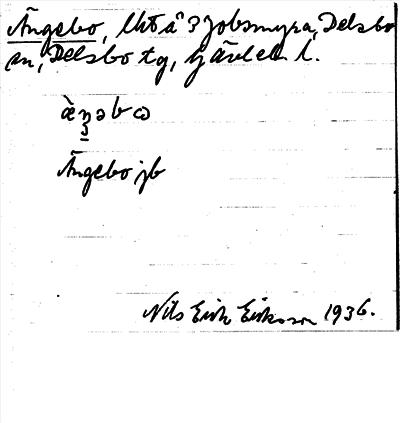 Ängebo, lht å 3 Jobsmyra, Delsbo
sn, Delsbo tg, Gävleb l.
Ängebo jb
Nils Eirik Eirksson 1936.